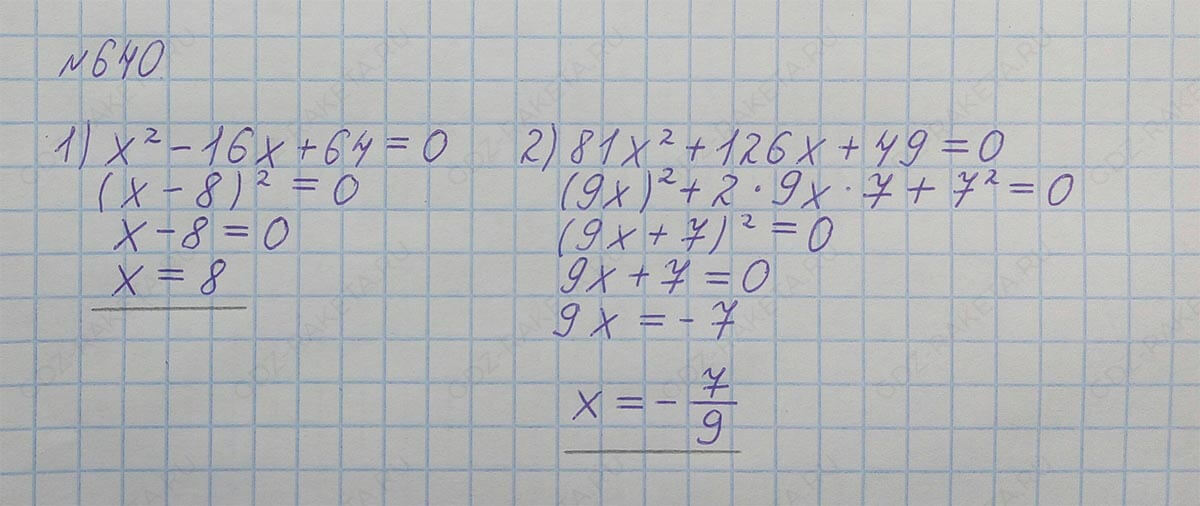 №640
1) x² - 16x + 64 = 0
(x - 8)² = 0
x - 8 = 0
x = 8
2) 81x² + 126x + 49 = 0
(9x)² + 2 · 9x · 7 + 7² = 0
(9x + 7)² = 0
9x + 7 = 0
9x = -7
x = - 7/9
GDZ-RAKETA.RU